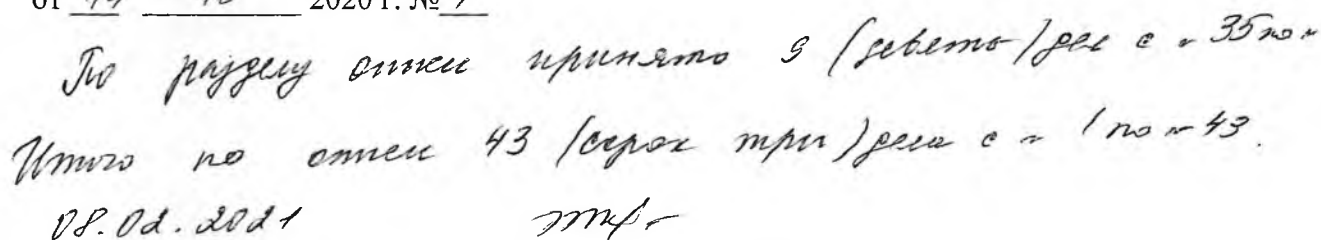 от 2020 г. №
По разделу описи принято 9 (девять) дел с № 35 по №
Итого по описи 43 (сорок три) дела с № 1 по № 43.
08.02.2021